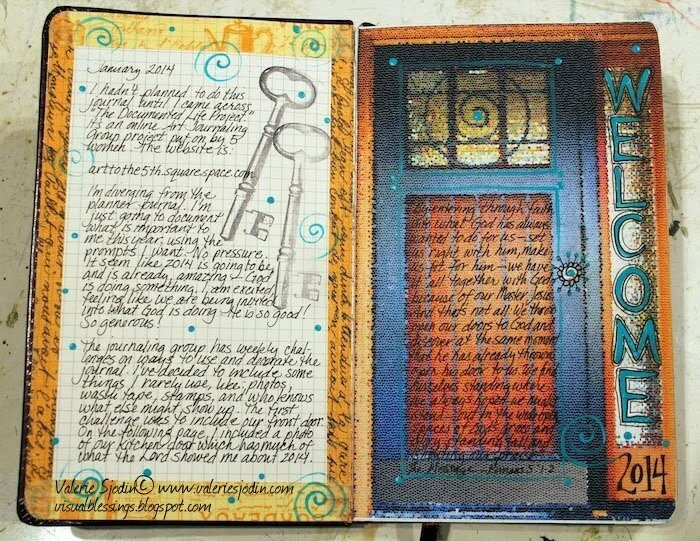 January 2014
I hadn't planned to do this
journal until I came across
"The Documented Life Project."
It's an online Art Journaling
Group project put on by 5
women. The website is:
arttothe5th.squarespace.com
I'm diverging from the
planner journal. I'm
just going to document
what is important to
me this year, using the
prompts I want. No pressure.
It seems like 2014 is going to be
and is already, amazing - God
is doing something. I am excited,
feeling like we are being invited
into what God is doing. He is so good!
So generous!
The journaling group has weekly chal-
lenges on ways to use and decorate the
journal. I've decided to include some
things I rarely use, like: photos,
washi tape, stamps, and who knows
what else might show up. The first
challenge was to include our front door.
On the following page, I included a photo
of our kitchen door which has much of
what the Lord showed me about 2014.
Valerie Sjodin© www.valeriesjodin.com
visualblessings.blogspot.com
WELCOME
2014
By entering through faith
into what God has always
wanted to do for us - set
us right with him, make
us fit for him - we have
it all together with God
because of our Master Jesus.
And that's not all: We throw
open our doors to God and
discover at the same moment
that he has already thrown
open his door to us. We find
ourselves standing where
we always hoped we might
stand - out in the wide open
spaces of God's grace and
glory, standing tall and
The Message Romans 5:1-2